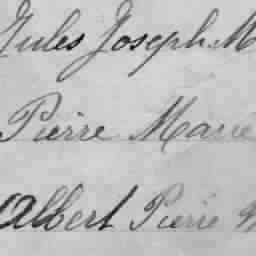 Jules Joseph M
Pierre Marie
Albert Pierre